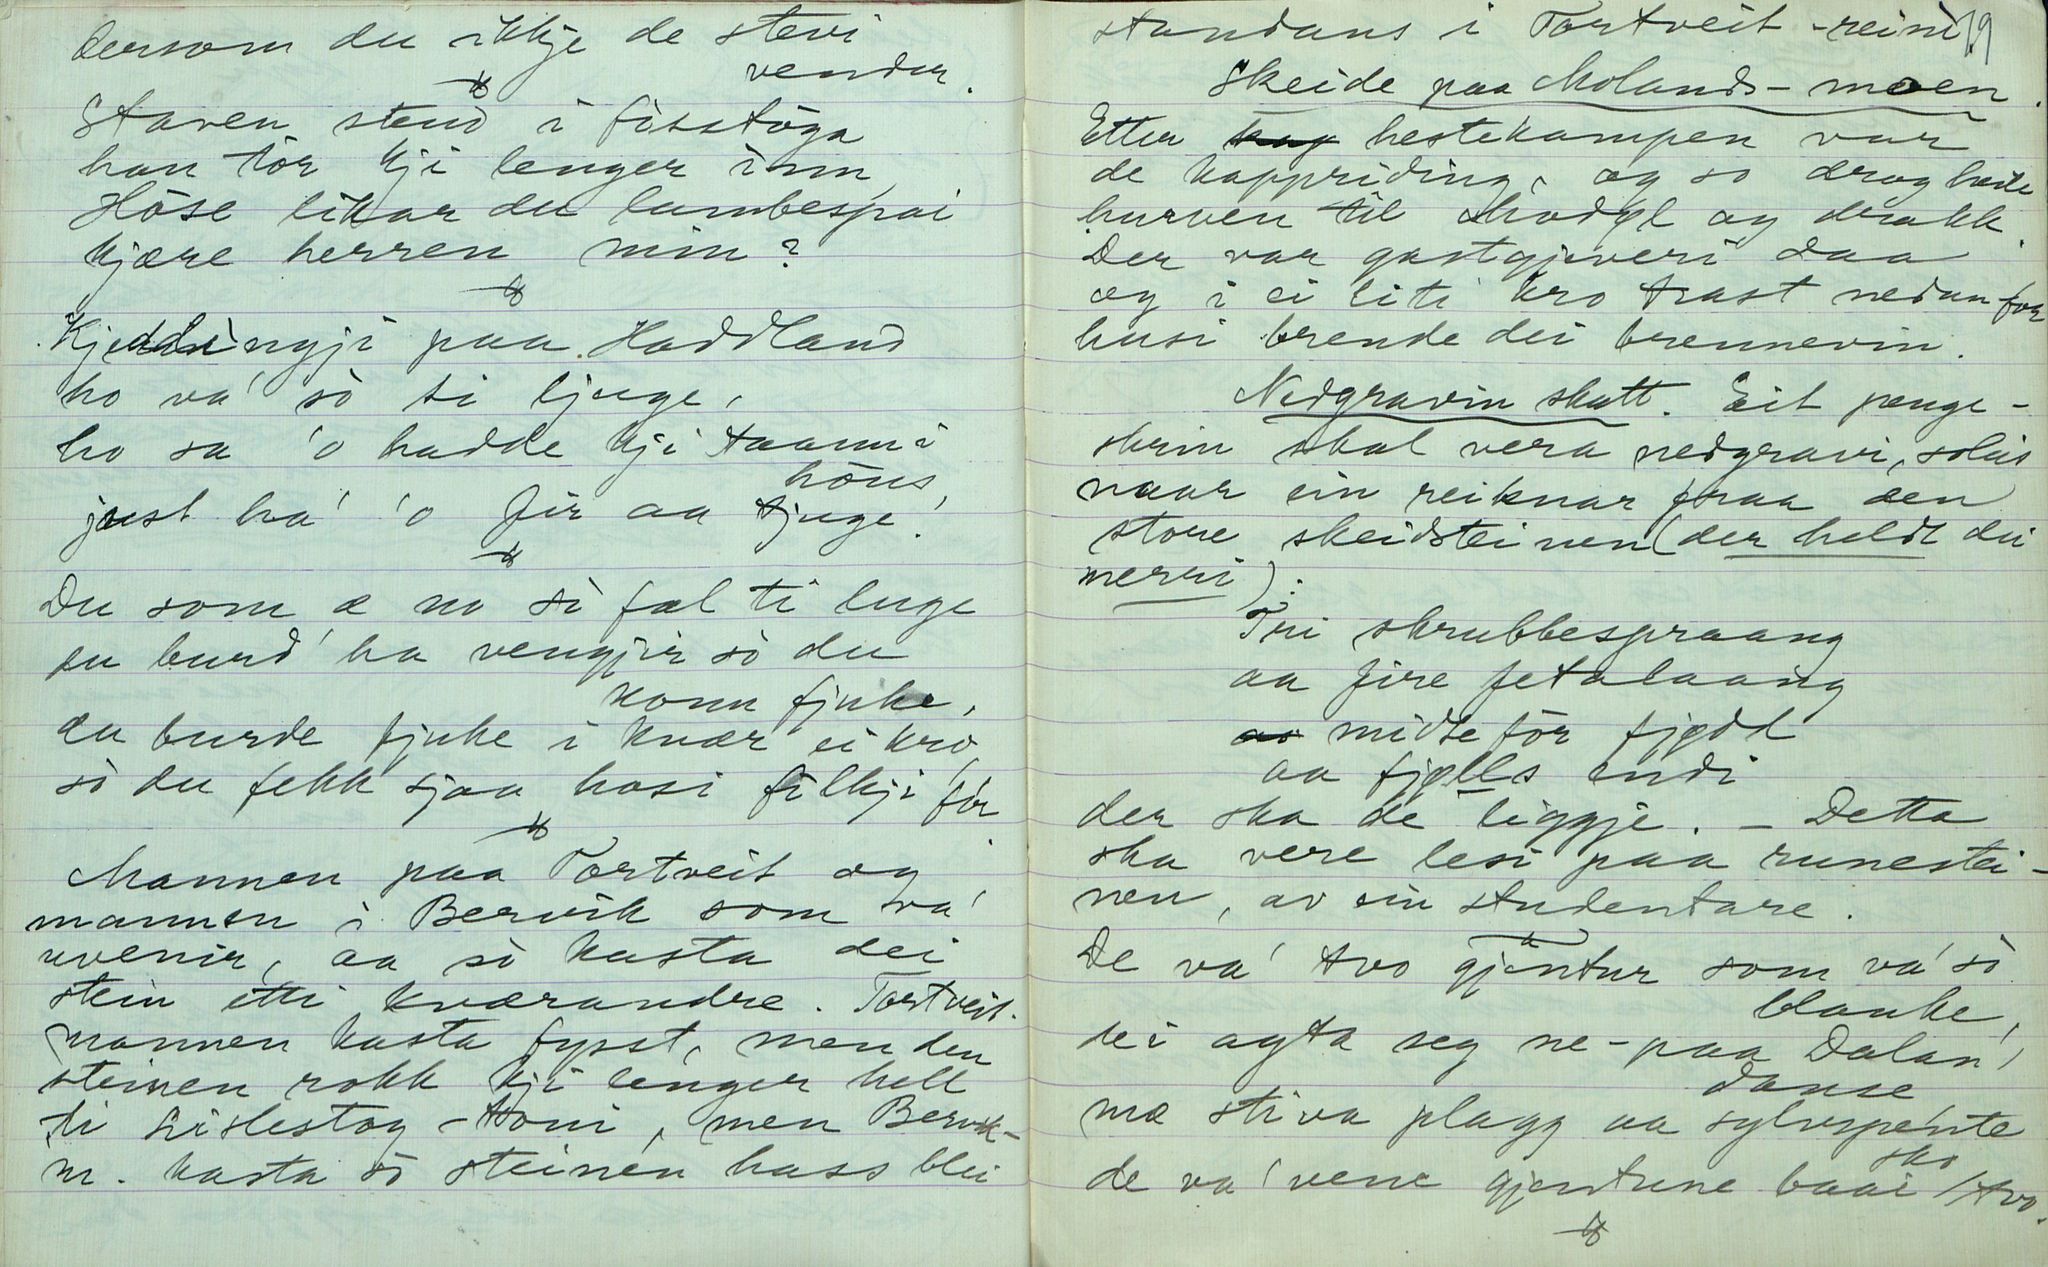 dersom du ikkje de stevi
vender.
Staven stend i fösstöga
han tör kji lenger inn,
Höse likar du lambespai
kjære herren min?
Kjeddingji paa Haddland
ho va' sò ti ljuge,
ho sa 'o hadde kji taami
höns,
just ha' 'o fir aa tjuge!
Du som æ no sò fæl ti luge
du burd' ha vengjir sò du
konn fjuke,
du burde fjuke i kvær ei kro
sò du fekk sjaa hosi filkji fór
Mannen paa Tortveit og
mannen i Bervik som va'
uvenir, aa sò kasta dei
stein etti kværandre. Tortveit-
mannen kasta fysst, men den
steinen rokk kji lenger hell
ti Lislestog-toni, men Bervik-
m. kasta sò steinen hass blei
standans i Tortveit-reini 19
Skeide paa Molands-moen.
Etter kap hestekampen var
de kappriding, og so drog heile
hurven til Skodøl og drakk.
Der var gastgjeveri daa
og i ei liti kro trast nedanfor
husi brende dei brennevin.
Nedgravin skatt. Eit penge-
skrin skal vera nedgravi, soleis
naar ein reiknar fraa den
store skeidsteinen (der heldt dei
merri):
Tri skrubbespraang
aa fire fetalaang
av midte för fjødl
aa fjølls endi
der ska de liggje. - Detta
ska vere lesi paa runestei-
nen, av ein studentare.
De va' tvo gjentur som va' sò
blanke,
dei agta seg ne-paa Dalan'
danse
mæ stiva plagg aa sylvspente
sko
de va' vene gjentune baai tvo.